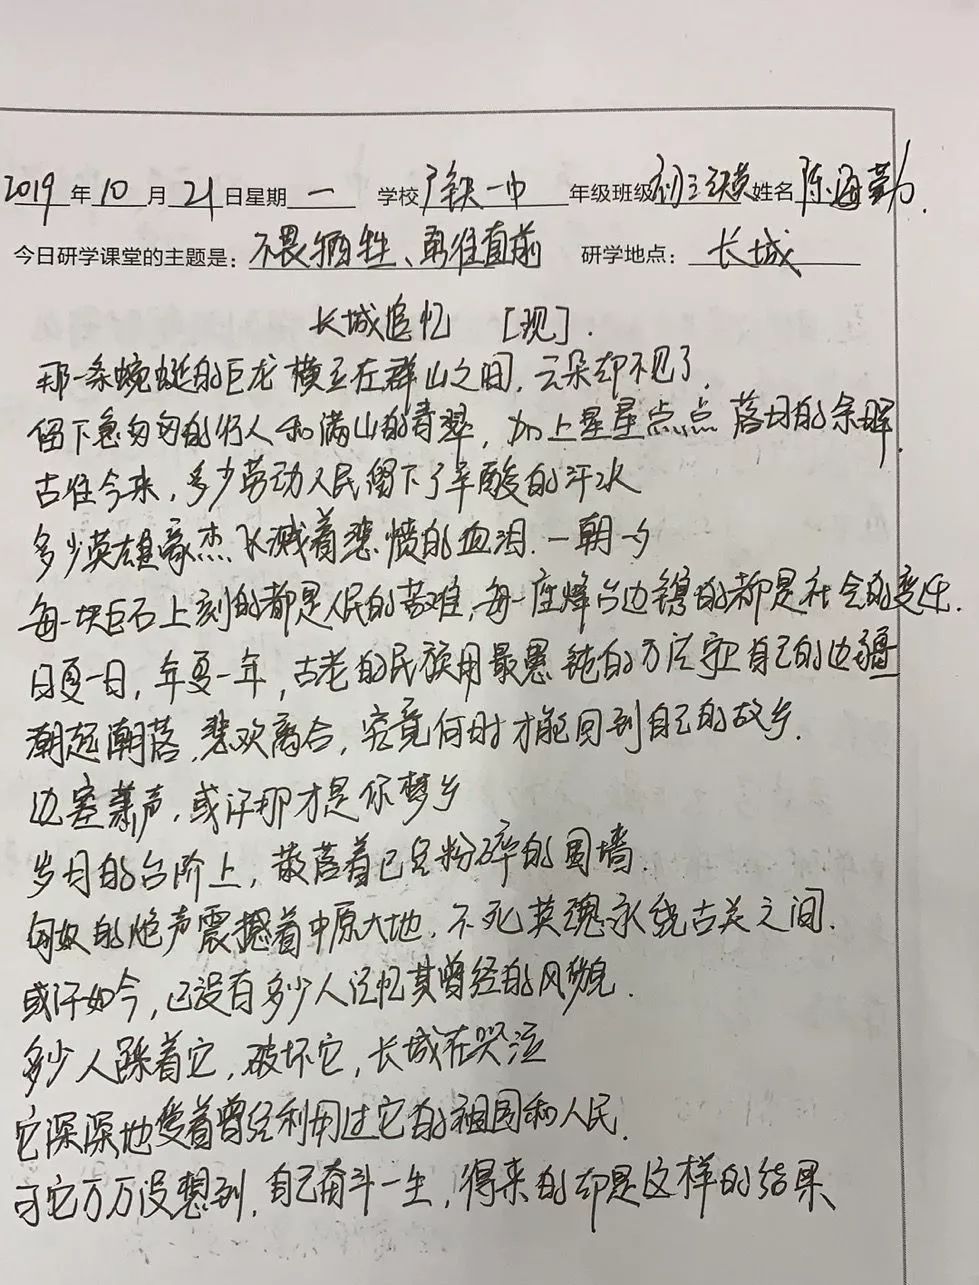 2019年10月21日星期一 学校广铁一中 年级班级初三 姓名陈海勤.
今日研学课堂的主题是：不畏牺牲、勇往直前 研学地点：长城
长城追忆 [现].
那一条蜿蜒的巨龙横亘在群山之间，云朵却不见了，
留下急匆匆的行人和满山的青翠，加上星星点点落日的余晖.
古往今来，多少劳动人民留下了辛酸的汗水
多少英雄豪杰飞溅着悲愤的血泪.一朝一夕
每一块巨石上刻的都是人民的苦难，每一座烽台边镌的都是社会的变迁.
日复一日，年复一年，古老的民族用最愚钝的方法守卫自己的边疆
潮起潮落，悲欢离合，究竟何时才能回到自己的故乡.
边塞萧声，或许那才是你梦乡
岁月的台阶上，散落着已经粉碎的围墙.
匈奴的炮声震撼着中原大地，不死英魂永绕古关之间.
或许如今，已没有多少人记忆其曾经的风貌.
多少人踩着它，破坏它，长城在哭泣
它深深地爱着曾经利用过它的祖国和人民.
可它万万没想到，自己奋斗一生，得来的却是这样的结果